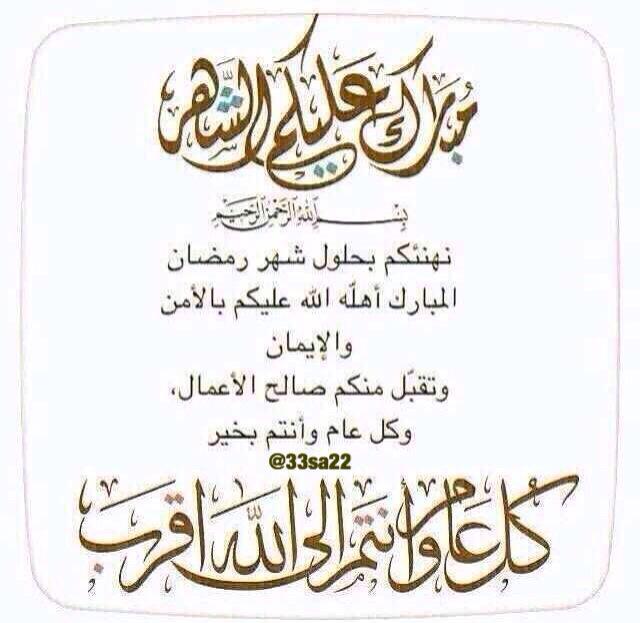 مُبارك عليكم الشّهر
بِسْمِ اللهِ الرَّحْمٰنِ الرَّحِيْمِ
نهنئكم بحلول شهر رمضان
المبارك أهلّه الله عليكم بالأمن
والإيمان
وتقبّل منكم صالح الأعمال،
وكل عام وأنتم بخير
@33sa22
كُل عام وأنتم إلى الله اقرب